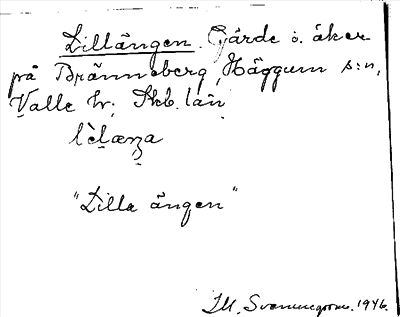 Lillängen. Gärde o. åker
på Bränneberg, Häggum s:n,
Valle hr; Skb. län
"Lilla ängen"
1946.